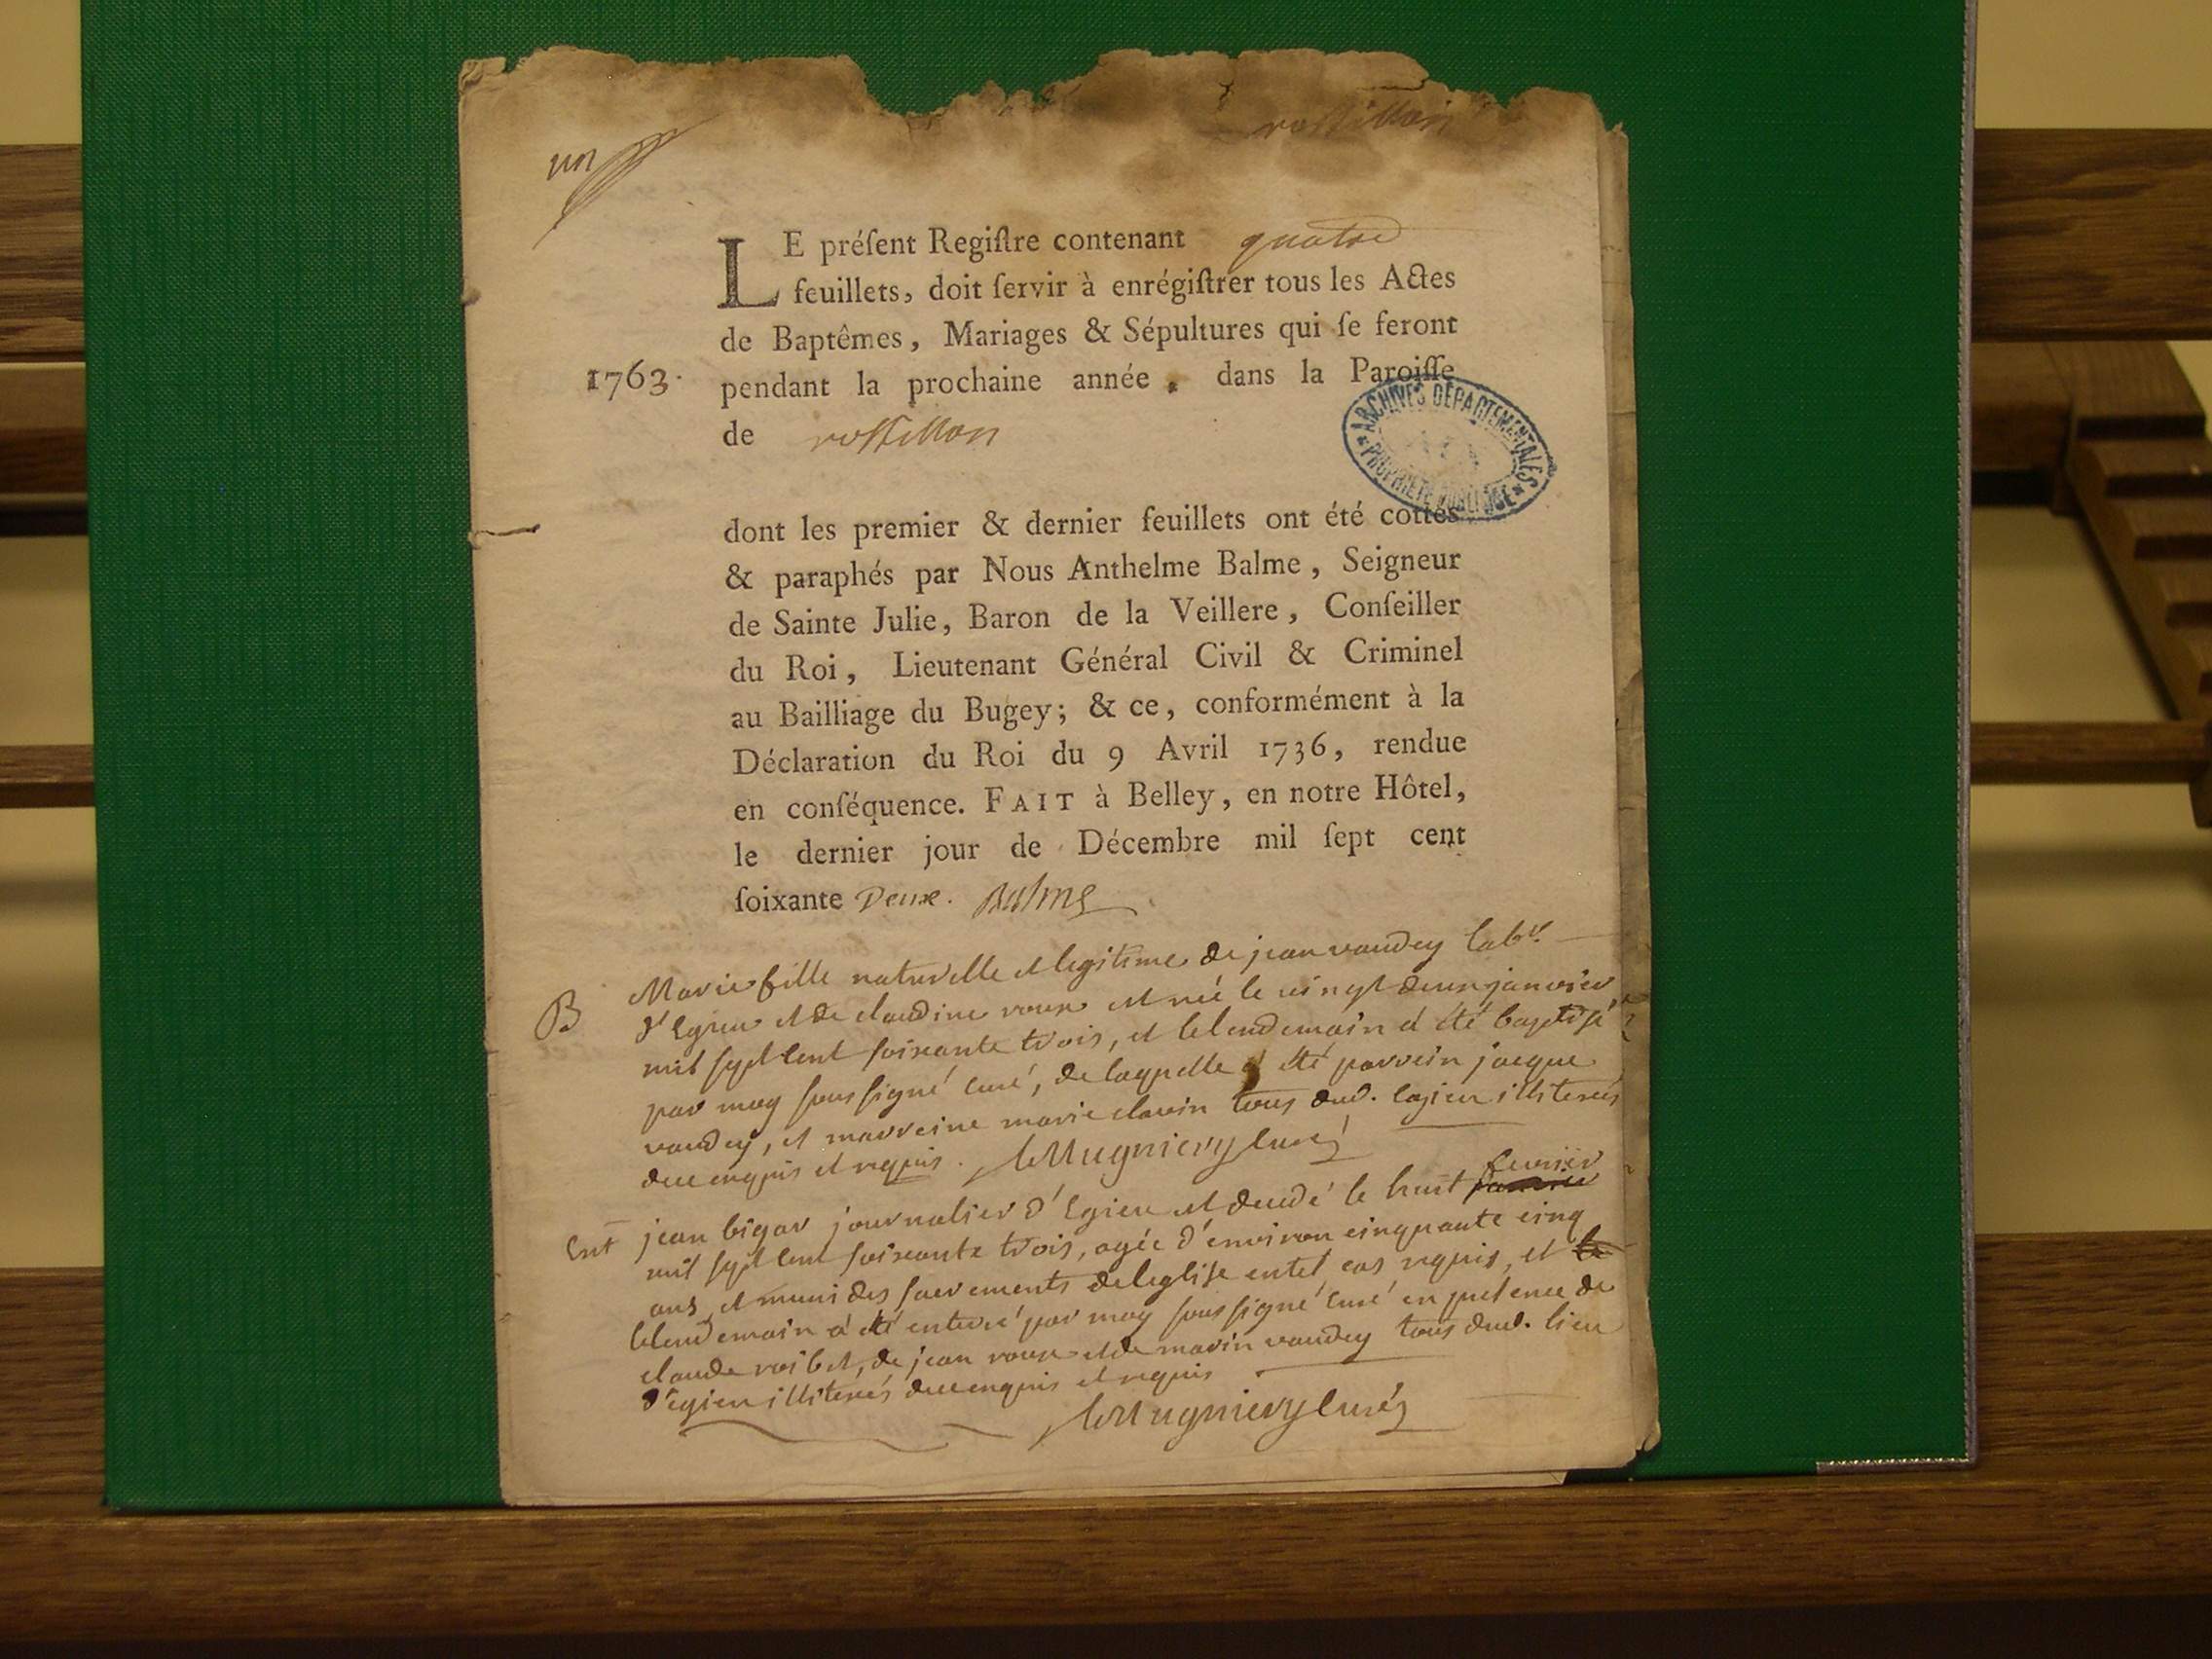 rossillon
un
LE préſent Regiſtre contenant quatre
feuillets, doit ſervir à enrégiſtrer tous les Actes
de Baptêmes, Mariages & Sépultures qui ſe feront
1763. pendant la prochaine année, dans la Paroiſſe
de rossillon
ARCHIVES DÉPARTEMENTALES
PROPRIÉTÉ PUBLIQUE
dont les premier & dernier feuillets ont été cottés
& paraphés par Nous Anthelme Balme, Seigneur
de Sainte Julie, Baron de la Veillere, Conſeiller
du Roi, Lieutenant Général Civil & Criminel
au Bailliage du Bugey; & ce, conformément à la
Déclaration du Roi du 9 Avril 1736, rendue
en conſéquence. FAIT à Belley, en notre Hôtel,
le dernier jour de Décembre mil ſept cent
ſoixante Deux. Balme
B Marie fille naturelle et legitime de jean vaudey labr.
d'Egieu et de claudine roux est née le vingt deux janvier
mil sept cent soixante trois, et le lendemain a été baptisé
par moy sous signé curé, de laquelle a été parrein jacque
vaudey, et marreine marie clavin tous dud. Egieu illiterés
de ce enquis et requis. Mugniery curé
Ent jean bigar journalier d'Egieu est decedé le huit fevrier
mil sept cent soixante trois, agée d'environ cinquante cinq
ans, et muni des sacrements de leglise en tel cas requis, et le
lendemain a été enterré par moy sous signé curé en presence de
claude roibet, de jean roux et de marin vaudey tous dud. lieu
d'egieu illiterés de ce enquis et requis
Mugniery curé